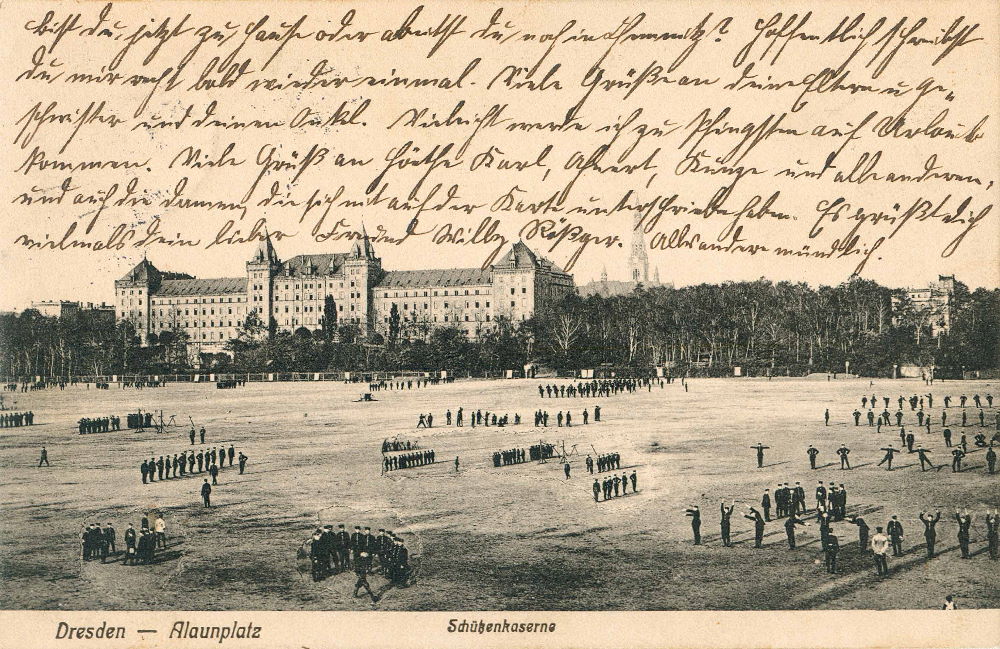 bist du jetzt zu Hause oder arbeitst du noch in Chemnitz? Hoffentlich schreibst
du mir recht bald wieder einmal. Viele Grüße an deine Eltern u Ge-
schwister und deinen Onkl. Vielleicht werde ich zu Pfingsten auf Urlaub
kommen. Viele Grüß an Göthe Karl, Albert, Kunze und alle anderen,
und auch die Damen, die sich mit auf der Karte unterschriebe haben. Es grüßt dich
vielmals dein lieber Freund Willy Rößger. Alles andere mündlich.
Dresden — Alaunplatz
Schützenkaserne